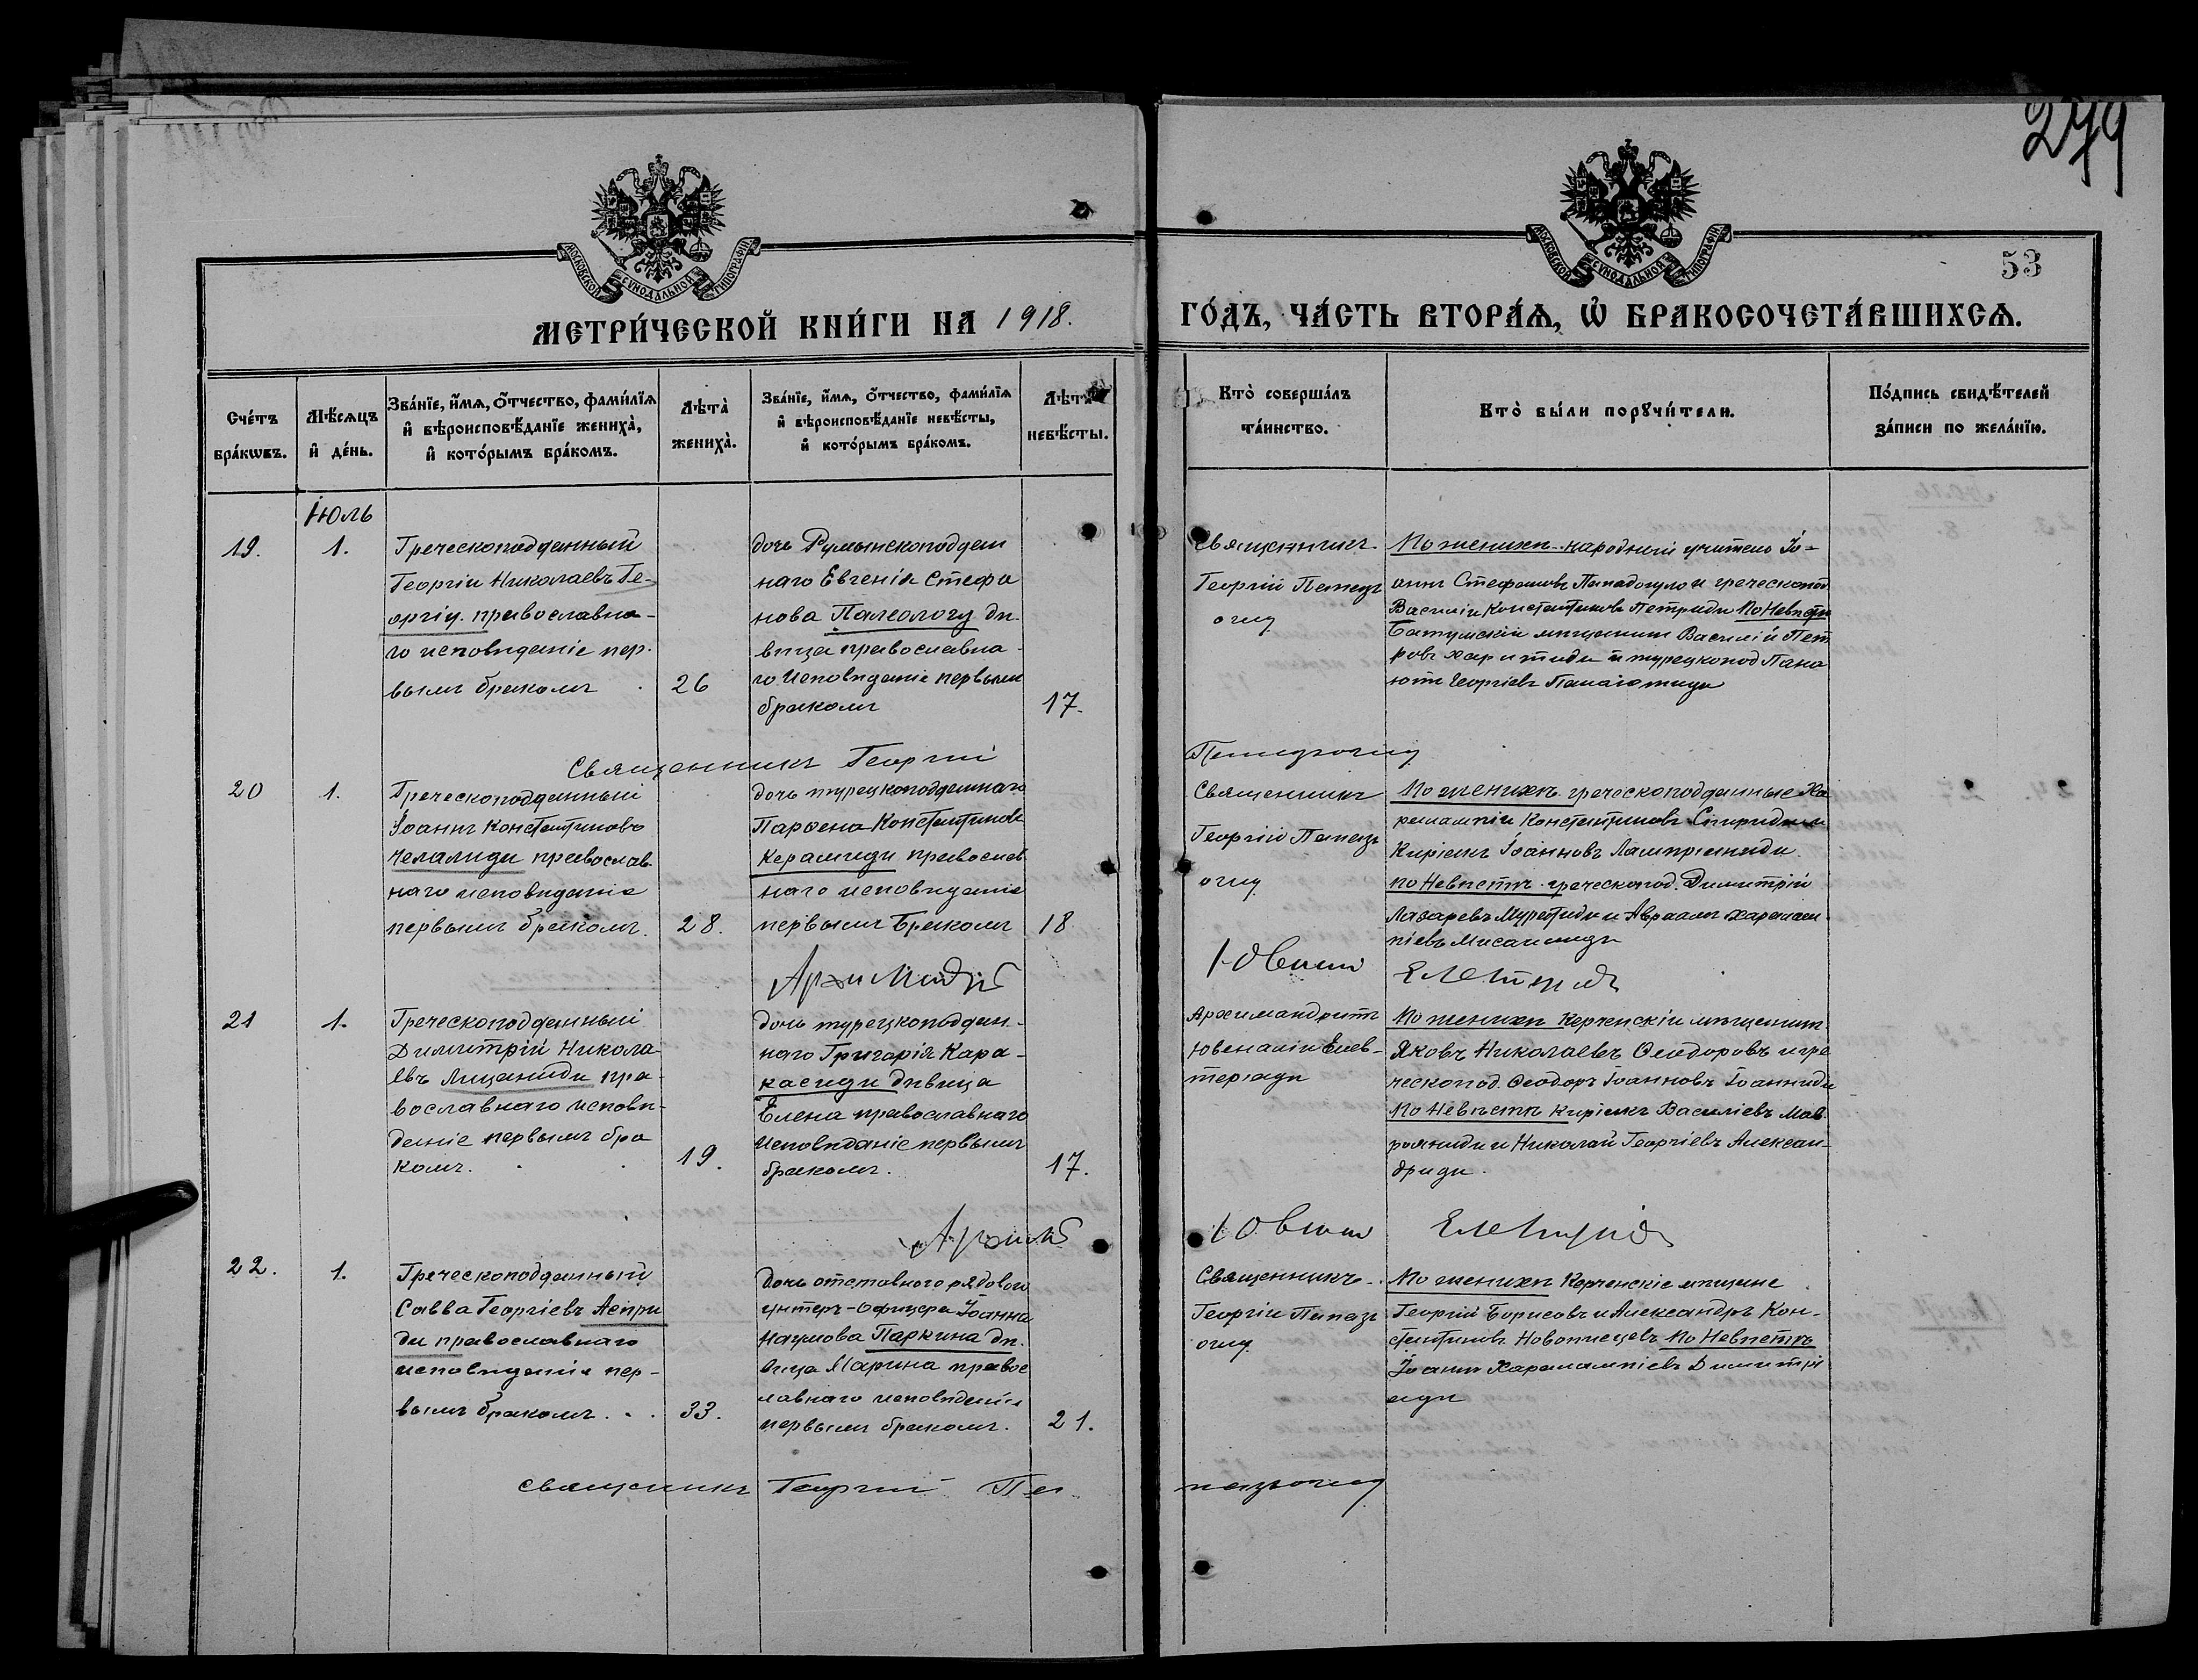 279
53
МОСКОВСКОЙ СѴНОДАЛЬНОЙ ТИПОГРАФІИ
МОСКОВСКОЙ СѴНОДАЛЬНОЙ ТИПОГРАФІИ
МЕТРИ́ЧЕСКОЙ КНИ́ГИ НА 1918.
ГО́ДЪ, ЧА́СТЬ ВТОРА́Я, Ѡ҆ БРАКОСОЧЕТА́ВШИХСѦ.
Сче́тъ
бра́кѡвъ.
Мѣ́сяцъ
и҆ де́нь.
Зва́нїе, и҆́мѧ, о҆́тчество, фами́лїѧ
и҆ вѣроисповѣ́данїе жениха̀,
и҆ кото́рымъ бра́комъ.
Лѣта̀
жениха̀.
Зва́нїе, и҆́мѧ, о҆́тчество, фами́лїѧ
и҆ вѣроисповѣ́данїе невѣ́сты,
и҆ кото́рымъ бра́комъ.
Лѣта̀
невѣ́сты.
Кто̀ соверша́лъ
та́инство.
Кто̀ бы́ли порꙋчи́тели.
По́дпись свидѣ́телей
за́писи по жела́нїю.
Іюль
19.
1.
Греческоподданный
Георгій Николаевъ Ге-
оргіу. православна-
го исповѣданіе пер-
вымъ бракомъ
26
дочь Румынскоподдан
наго Евгенія Стефа
нова Палеологу дѣ-
вица православна-
го исповѣданіе первымъ
бракомъ
17.
Священникъ
Георгій Папаз
оглу
По женихѣ народный учитель Іо-
аннъ Стефановъ Пападопуло и греческопод
Василій Константиновъ Петриди По Невѣстѣ
Батумскій мѣщанинъ Василій Пет
ровъ Харитиди и турецкопод Пана
ютъ Георгіевъ Панаіотиди
Священникъ Георгій
Папазоглу
20
1.
Греческоподданный
Іоаннъ Константиновъ
Челалиди православ
наго исповѣданіе
первымъ бракомъ.
28.
дочь турецкоподданнаго
Парѳена Константинова
Керамиди православ
наго исповѣданіе
первымъ Бракомъ
18
Священникъ
Георгій Папаз
оглу
По женихѣ греческоподданные Ха
рлампій Константиновъ
Киріакъ Іоанновъ Лампріаниди.
по Невѣстѣ греческопод. Димитрій
Лазаревъ Муратиди и Авраамъ Харлам
піевъ
21
1.
Греческоподданный
Димитрій Никола-
евъ Лицаниди пра-
вославнаго исповѣ-
даніе первымъ бра
комъ.
19.
дочь турецкоподдан-
наго Григорія Кара-
касиди дѣвица
Елена православнаго
исповѣданіе первымъ
бракомъ.
17.
Архимандритъ
Ювеналій Елев-
теріади
По женихѣ Керченскій мѣщанинъ
Яковъ Николаевъ Ѳеодоровъ и гре
ческопод. Ѳеодоръ Іоанновъ Іоаниди
По Невѣстѣ Киріакъ Василіевъ Мав
рояниди и Николай Георгіевъ Алексан-
дриди.
22.
1.
Греческоподданный
Савва Георгіевъ Аспри
ди православнаго
исповѣданіе пер-
вымъ бракомъ.
33.
Дочь отставного рядового
унтеръ-офицера Іоанна
Наумова Паркина дѣ-
вица Марина правос
лавнаго исповѣданія
первымъ бракомъ.
21.
Священникъ
Георгій Папаз
оглу
По женихѣ Керченскіе мѣщане
Георгій Борисовъ и Александръ Кон-
стантиновъ Новописцевъ По Невѣстѣ
Іоаннъ Харлампіевъ Димитрі
ади
Священникъ Георгій Па
пазоглу